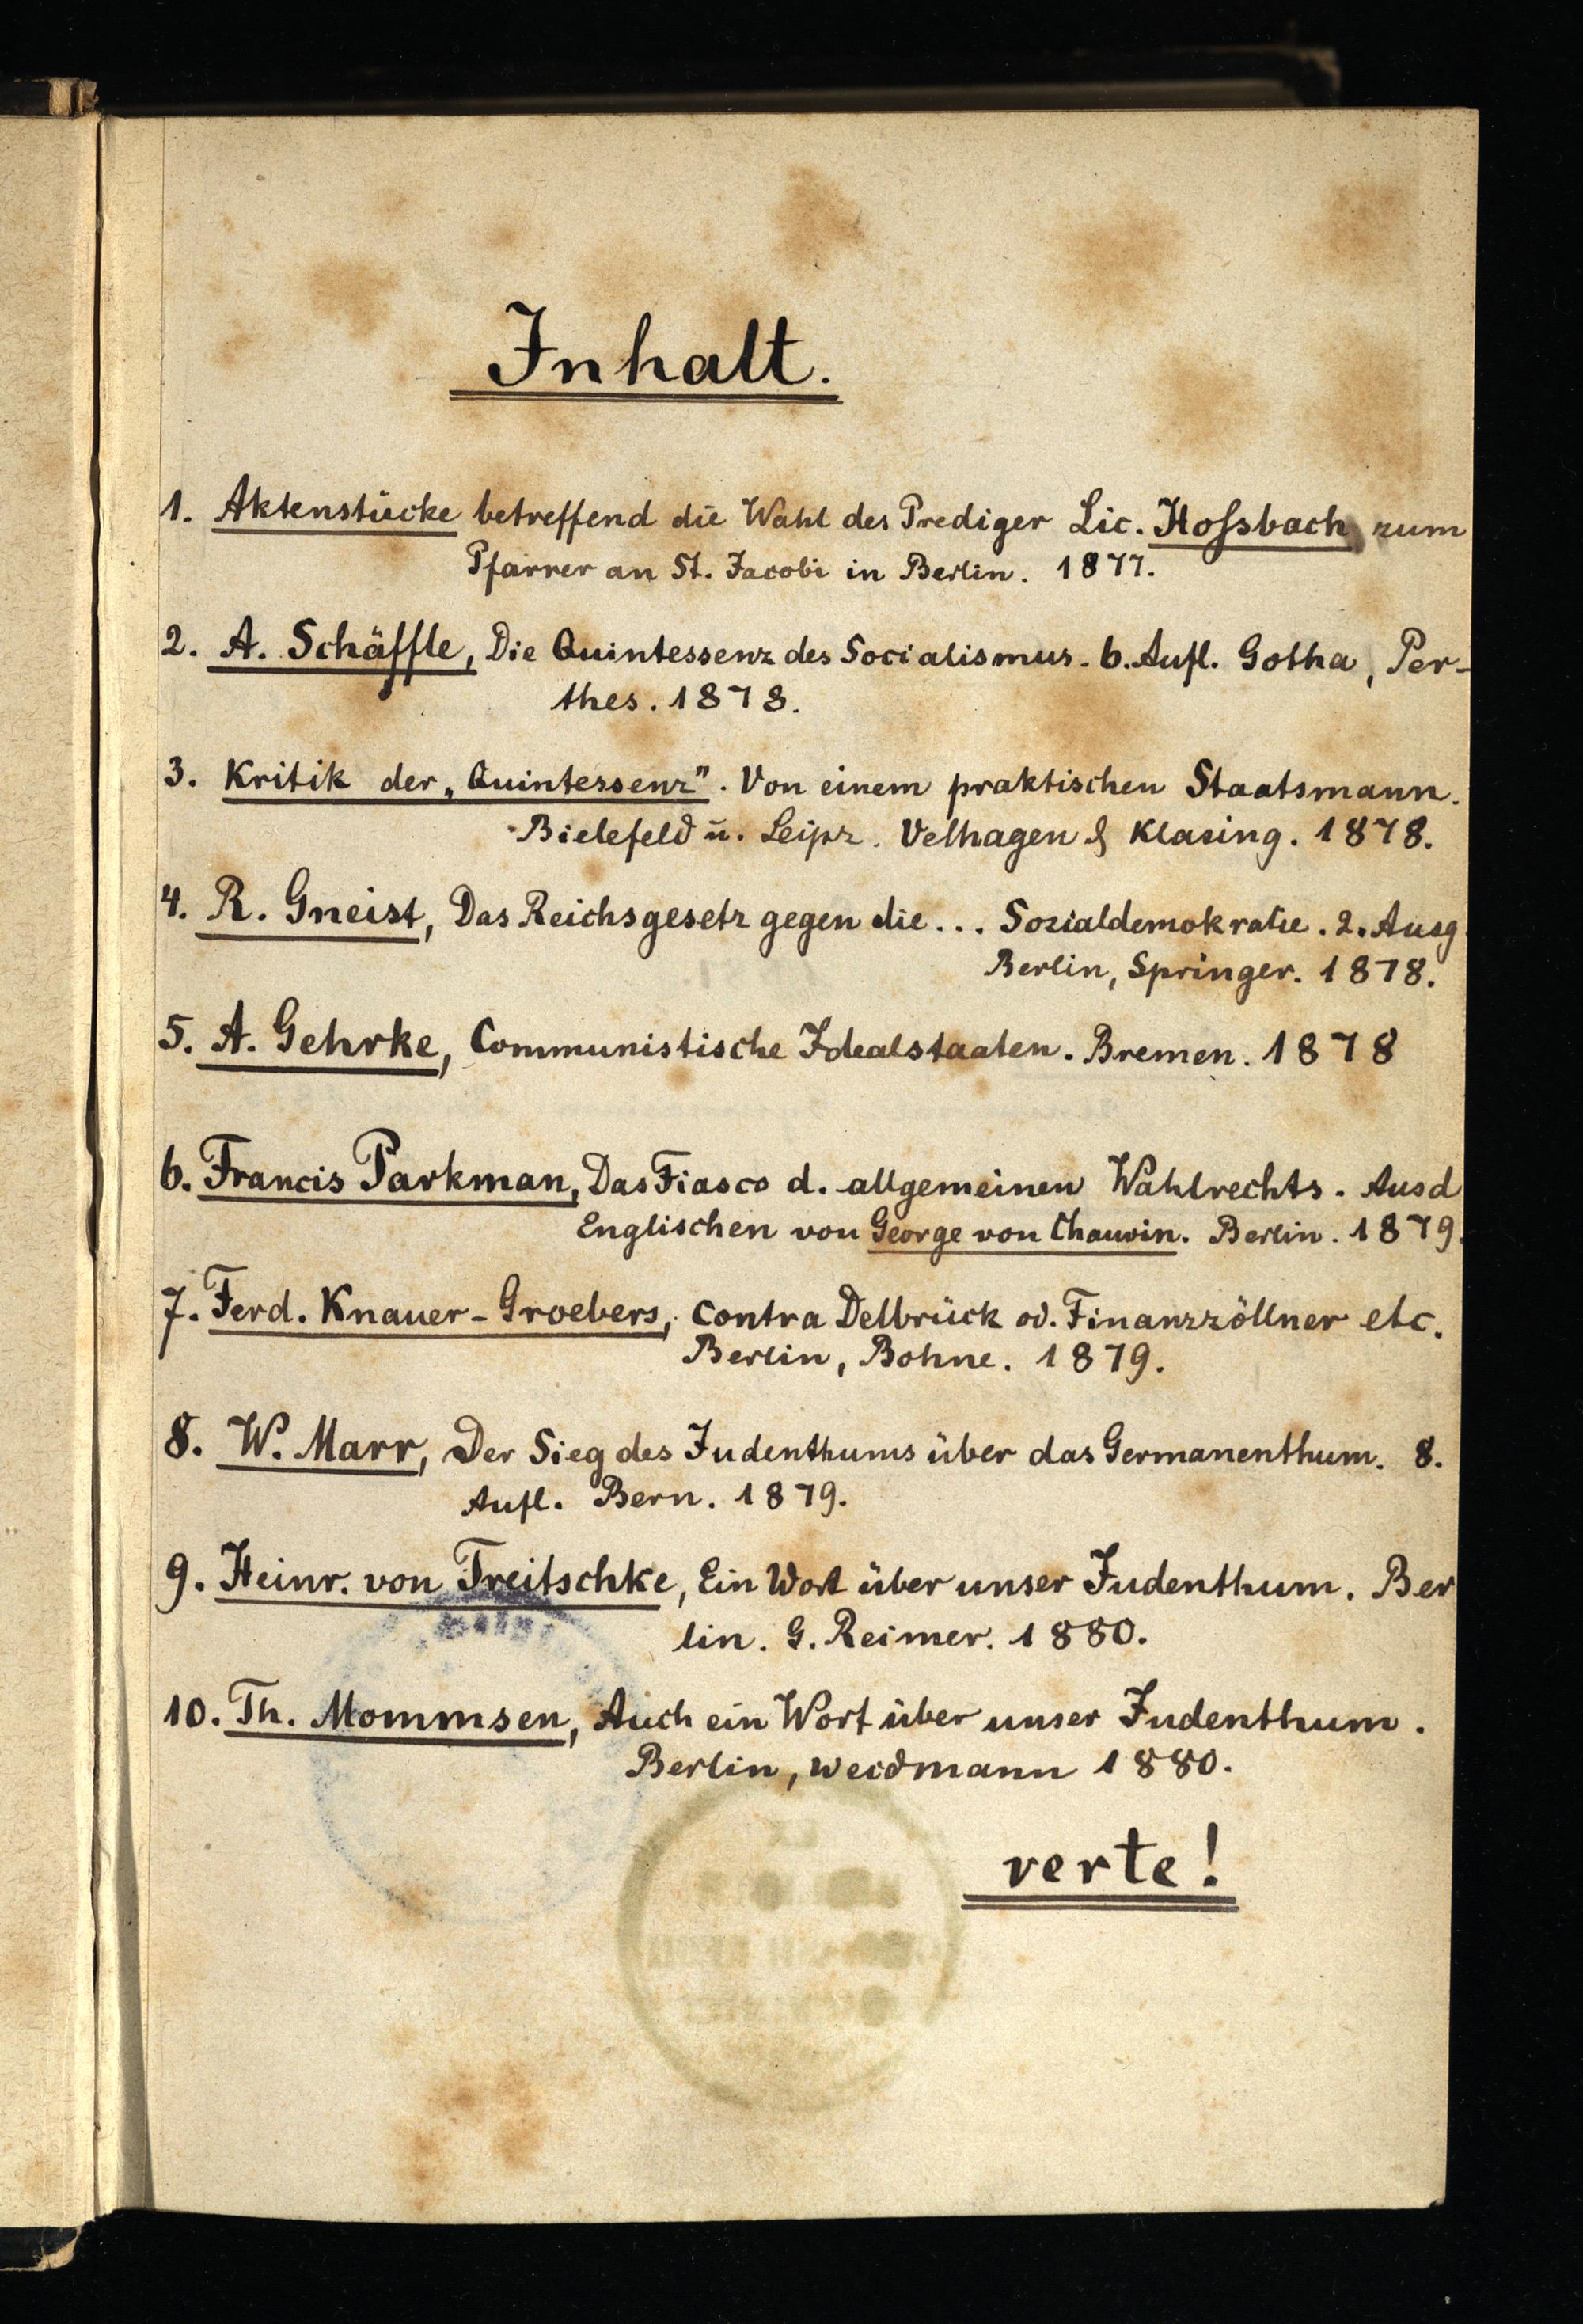 Inhalt.
1. Aktenstücke betreffend die Wahl des Prediger Lic. Hoſsbach zum
Pfarrer an St. Jacobi in Berlin. 1877.
2. A. Schäffle, Die Quintessenz des Socialismus. 6. Aufl. Gotha, Per-
thes. 1878.
3. Kritik der „Quintessenz". Von einem praktischen Staatsmann.
Bielefeld u. Leipz. Velhagen & Klasing. 1878.
4. R. Gneist, Das Reichsgesetz gegen die... Sozialdemokratie. 2. Ausg.
Berlin, Springer. 1878.
5. A. Gehrke, Communistische Idealstaaten. Bremen. 1878
6. Francis Parkman, Das Fiasco d. allgemeinen Wahlrechts. Aus d
Englischen von George von Chauvin. Berlin. 1879.
7. Ferd. Knauer-Groebers, Contra Delbrück od. Finanzzöllner etc.
Berlin, Bohne. 1879.
8. W. Marr, Der Sieg des Judenthums über das Germanenthum. 8.
Aufl. Bern. 1879.
9. Heinr. von Treitschke, Ein Wort über unser Judenthum. Ber
lin. G. Reimer. 1880.
10. Th. Mommsen, Auch ein Wort über unser Judenthum.
Berlin, Weidmann 1880.
verte!